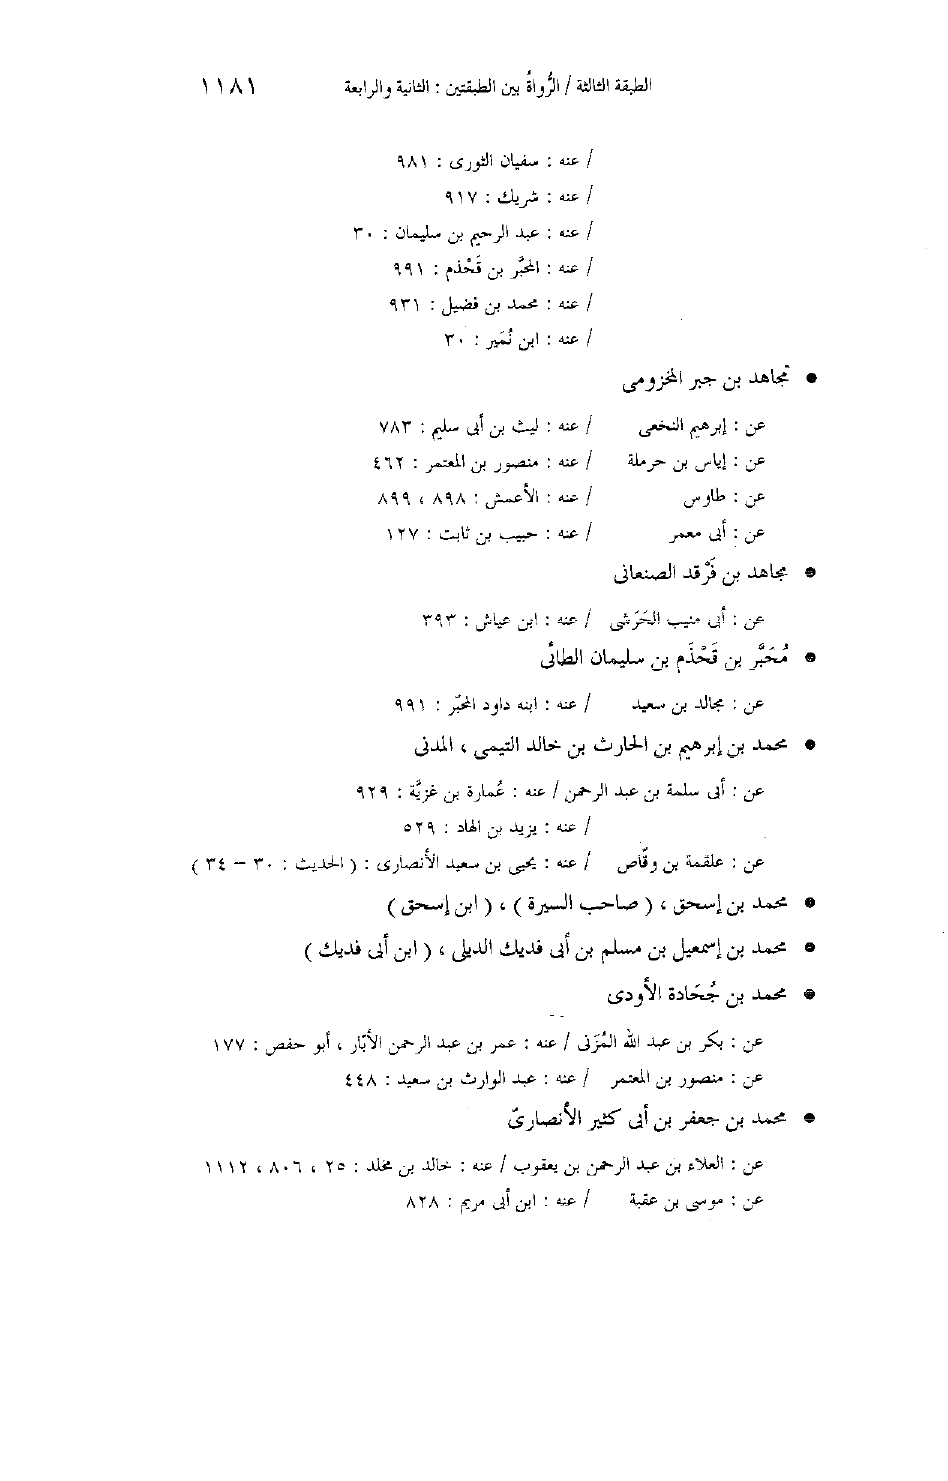 الطبقة الثالثة / الرُّواةُ بين الطبقتين : الثانية والرابعة ١١٨١
/ عنه : سفيان الثورى : ٩٨١
/ عنه : شريك : ٩١٧
/ عنه : عبد الرحيم بن سليمان : ٣٠
/ عنه : المحبَّر بن قَحْذم : ٩٩١
/ عنه : محمد بن فضيل : ٩٣١
/ عنه : ابن نُمَير : ٣٠
● مجاهد بن جبر المخزومى
عن : إبرهيم النخعى / عنه : ليث بن أبى سليم : ٧٨٣
عن : إياس بن حرملة / عنه : منصور بن المعتمر : ٤٦٢
عن : طاوس / عنه : الأعمش : ٨٩٨ ، ٨٩٩
عن : أبى معمر / عنه : حبيب بن ثابت : ١٢٧
● مجاهد بن فَرْقد الصنعانى
عن : أبى منيب الحَرَشى / عنه : ابن عياش : ٣٩٣
● مُحَبَّر بن قَحْذَم بن سليمان الطائى
عن : مجالد بن سعيد / عنه : ابنه داود المحبّر : ٩٩١
● محمد بن إبرهيم بن الحارث بن خالد التيمى ، المدنى
عن : أبى سلمة بن عبد الرحمن / عنه : عُمارة بن غزيَّة : ٩٢٩
/ عنه : يزيد بن الهاد : ٥٢٩
عن : علقمة بن وقّاص / عنه : يحيى بن سعيد الأنصارى : ( الحديث : ٣٠ – ٣٤ )
● محمد بن إسحق ، ( صاحب السيرة ) ، ( ابن إسحق )
● محمد بن إسمعيل بن مسلم بن أبى فديك الديلى ، ( ابن أبى فديك )
● محمد بن جُحَادة الأودى
عن : بكر بن عبد الله المُزَنى / عنه : عمر بن عبد الرحمن الأبّار ، أبو حفص : ١٧٧
عن : منصور بن المعتمر / عنه : عبد الوارث بن سعيد : ٤٤٨
● محمد بن جعفر بن أبى كثير الأنصارىّ
عن : العلاء بن عبد الرحمن بن يعقوب / عنه : خالد بن مخلد : ٢٥ ، ٨٠٦ ، ١١١٢
عن : موسى بن عقبة / عنه : ابن أبى مريم : ٨٢٨